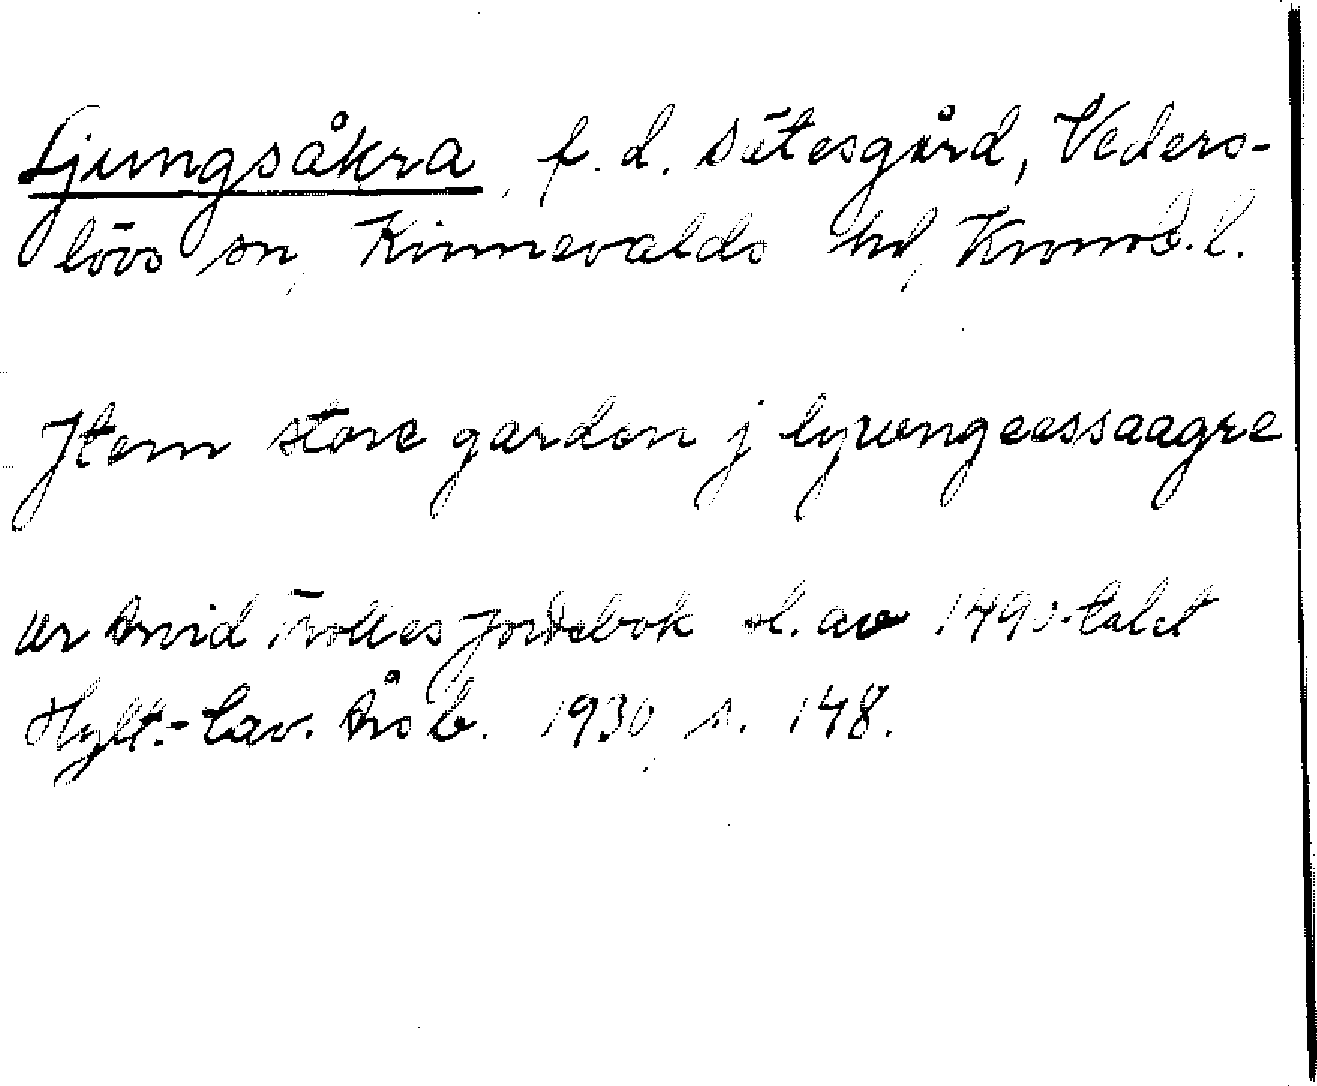 Ljungsåkra, f.d. sätesgård, Veders-
lövs sn, Kinnevalds hd, Kronob.l.
Jtem store garden j lywngeessaagre
ur Arvid Trolles jordebok sl. av 1490-talet
Hylt.-Cav. Årsb. 1930, s. 148.